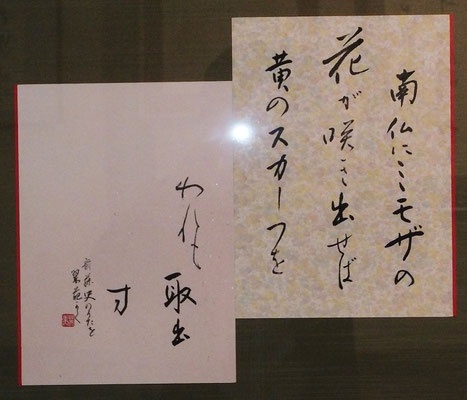 南仏にミモザの
花が咲き出せば
黄のスカーフを
われも
取出
寸
斎藤史のうたを
翠苑かく